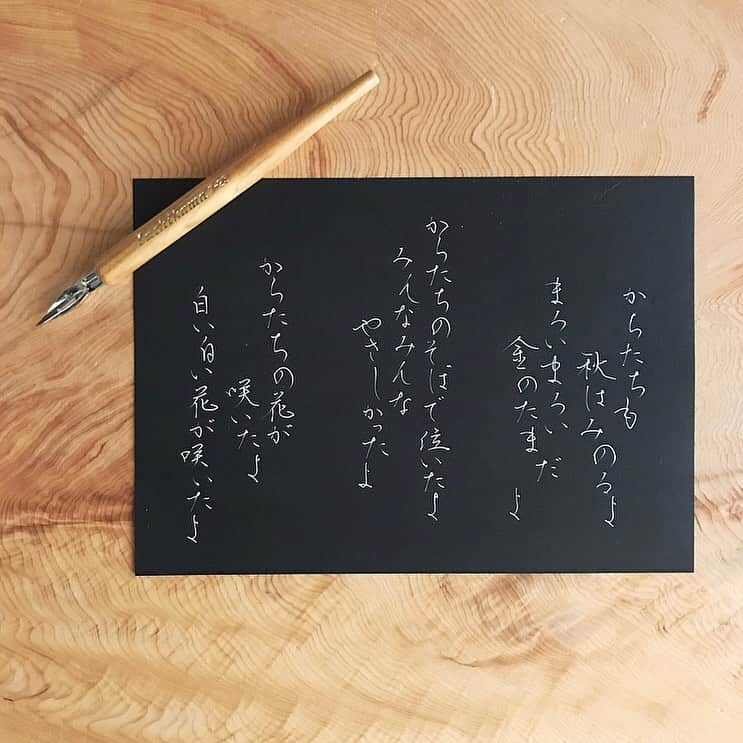 からたちも
秋はみのるよ
まろいまろい
金のたまだよ
からたちのそばで泣いたよ
みんなみんな
やさしかったよ
からたちの花が
咲いたよ
白い白い花が咲いたよ
Tachikawa